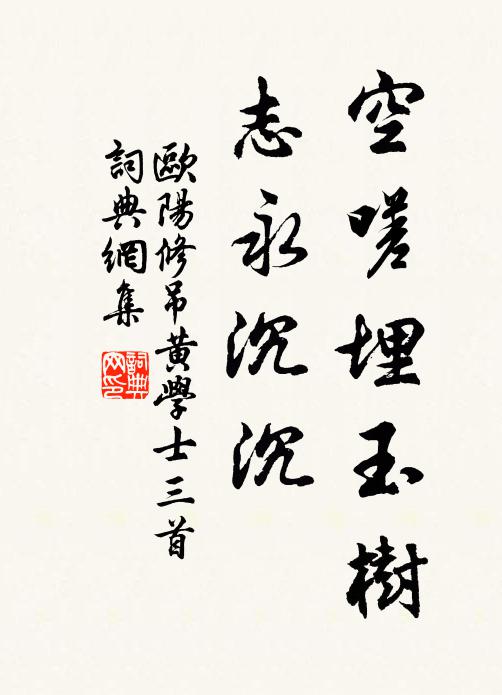 空嗟埋玉樹
志永沉沉
歐陽修吊黃學士三首
詞典網集
詞典网印